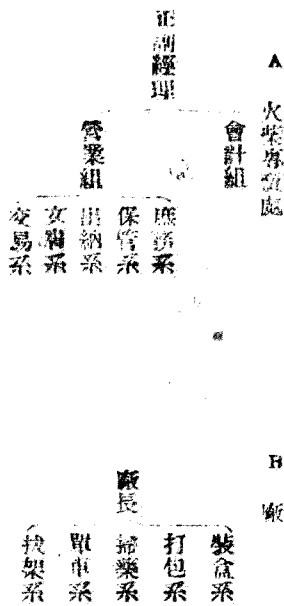 A 火柴專賣處
正副經理
會計組
營業組
庶務系
保管系
出納系
文牘系
交易系
B 廠
廠長
裝盒系
打包系
掃藥系
單車系
架系